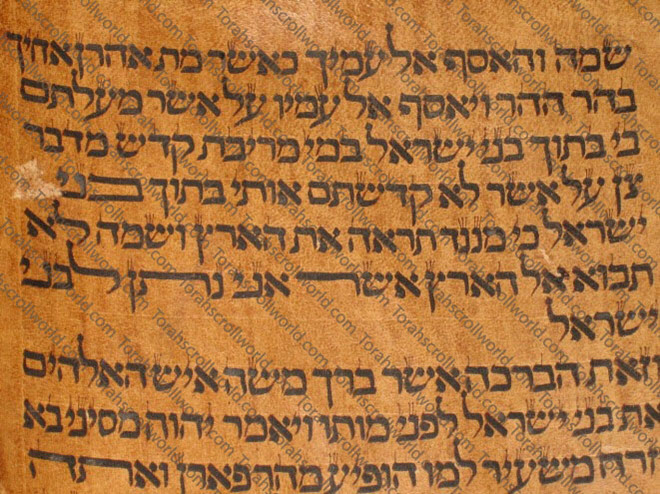 שמה והאסף אל עמיך כאשר מת אהרן אחיך
בהר ההר ויאסף אל עמיו על אשר מעלתם
בי בתוך בני ישראל במי מריבת קדש מדבר
צן על אשר לא קדשתם אותי בתוך בני
ישראל כי מנגד תראה את הארץ ושמה לא
תבוא אל הארץ אשר אני נתן לבני
ישראל
וזאת הברכה אשר ברך משה איש האלהים
את בני ישראל לפני מותו ויאמר יהוה מסיני בא
וזרח משעיר למו הופיע מהר פארן ואתה
Torahscrollworld.com